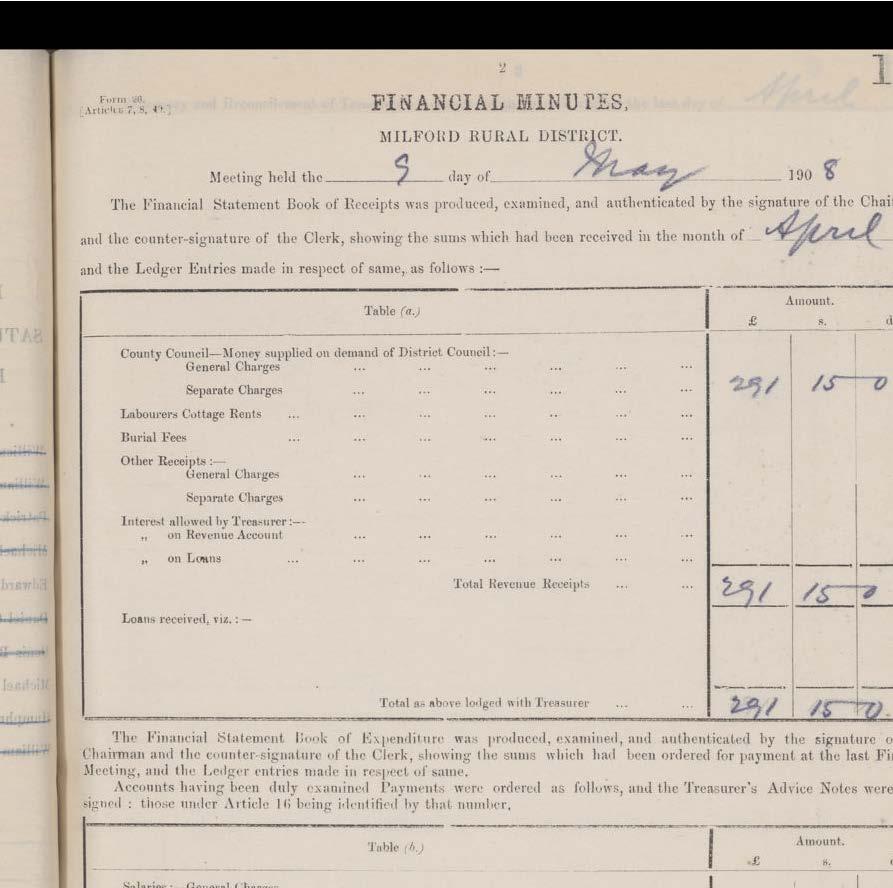 2
1
Form 26.
[Articles 7, 8, 49.]
FINANCIAL MINUTES,
MILFORD RURAL DISTRICT.
Meeting held the 9 day of May 1908
The Financial Statement Book of Receipts was produced, examined, and authenticated by the signature of the Chai
and the counter-signature of the Clerk, showing the sums which had been received in the month of April
and the Ledger Entries made in respect of same, as follows :—
Table (a.) Amount.
£ s. d
County Council—Money supplied on demand of District Council :—
General Charges ... ... ... ... ... ...
Separate Charges ... ... ... ... ... ... 291 15 0
Labourers Cottage Rents ... ... ... ... .. ... ...
Burial Fees ... ... ... ... ... ... ...
Other Receipts :—
General Charges ... ... ... ... ... ...
Separate Charges ... ... ... ... ... ...
Interest allowed by Treasurer :—
„ on Revenue Account ... ... ... ... ... ...
„ on Loans ... ... ... ... ... ... ...
Total Revenue Receipts ... ... 291 15 0
Loans received, viz. : —
Total as above lodged with Treasurer ... ... 291 15 0
The Financial Statement Book of Expenditure was produced, examined, and authenticated by the signature o
Chairman and the counter-signature of the Clerk, showing the sums which had been ordered for payment at the last Fi
Meeting, and the Ledger entries made in respect of same.
Accounts having been duly examined Payments were ordered as follows, and the Treasurer's Advice Notes were
signed : those under Article 16 being identified by that number.
Table (b.) Amount.
£ s.
Salaries :— General Charges